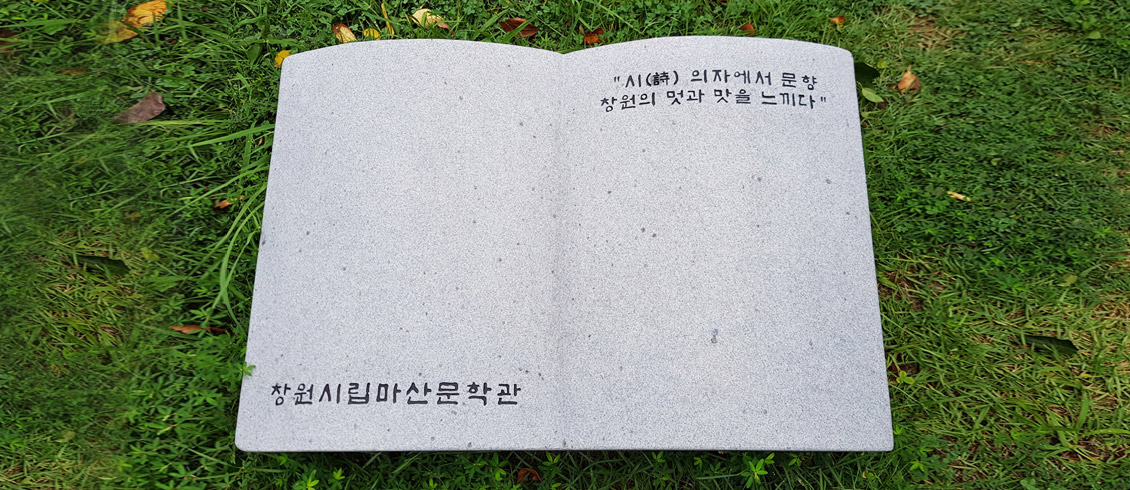 "시(詩) 의자에서 문향
창원의 멋과 맛을 느끼다"
창원시립마산문학관